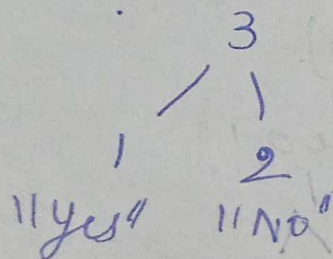 3
1 2
"Yes" "No"